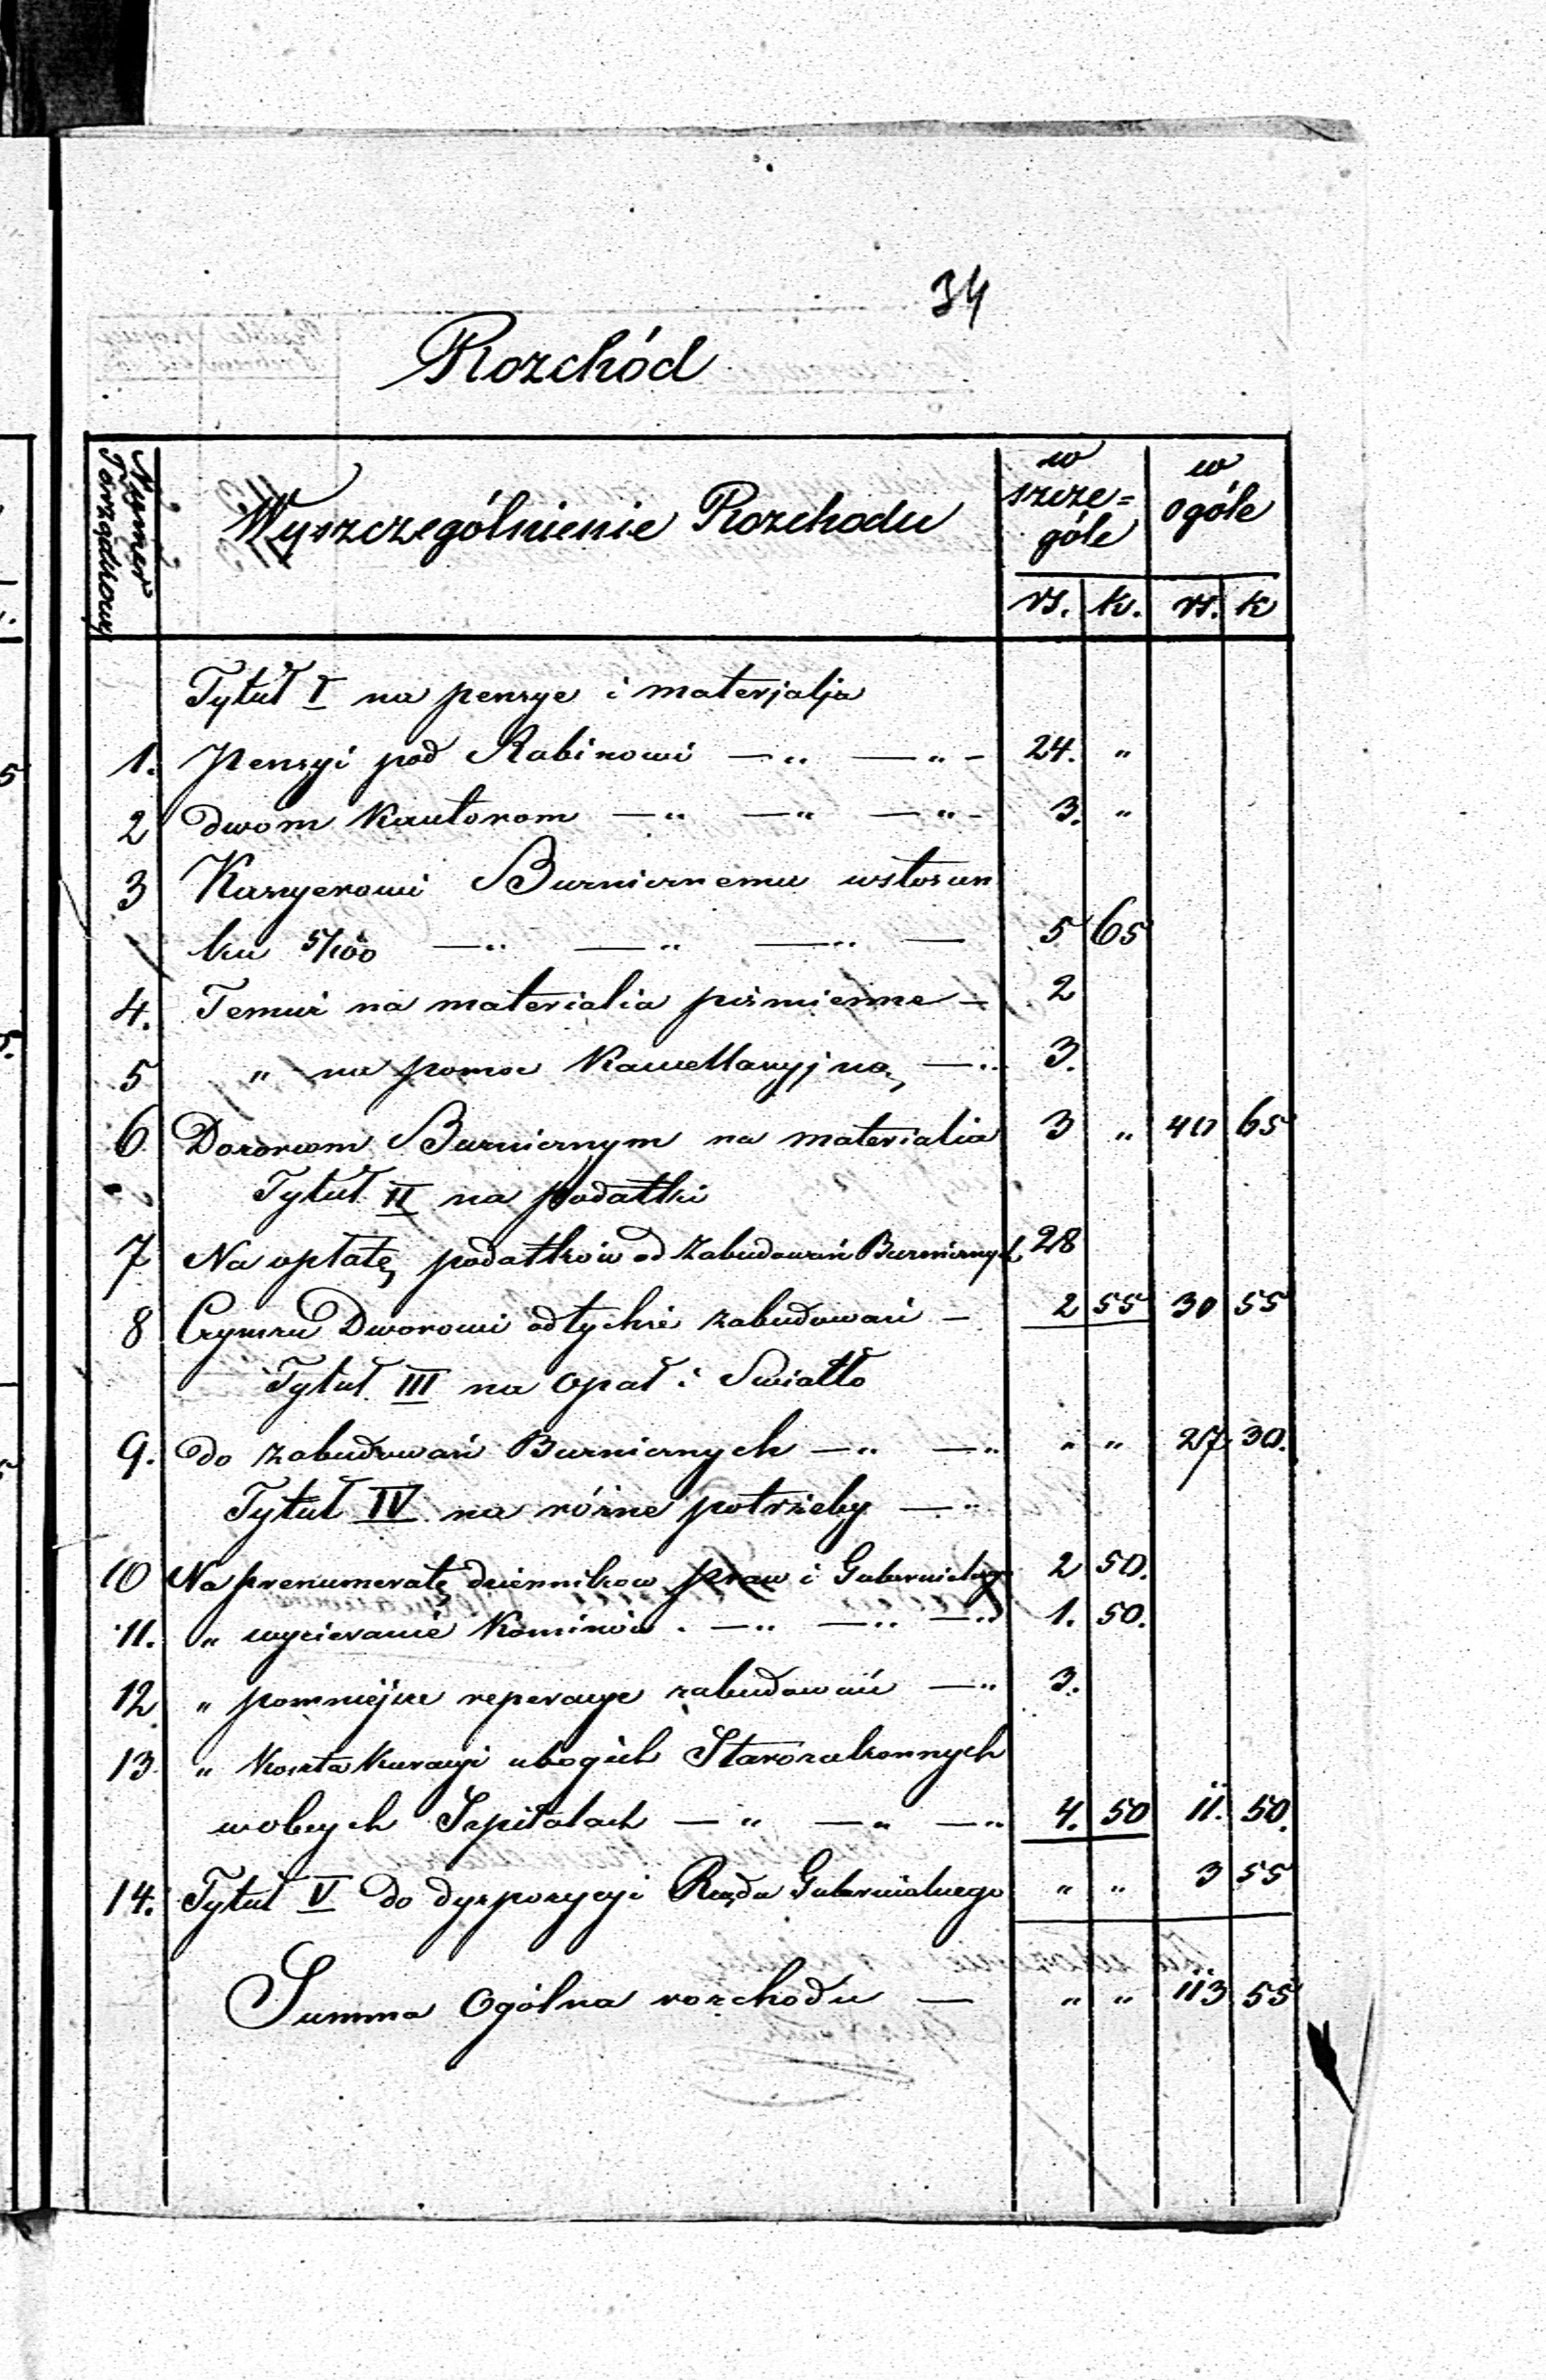 34
Rozchód
Numer Porządkowy
Wyszczególnienie Rozchodu
w szcze=góle
w ogóle
rs. k. rs. k
Tytuł I na pensye i materjalja
1. Pensyi pod Rabinowi —„ —„ – 24. „
2 dwom Kantorom —„ —„ —„ – 3. „
3 Kasyerowi Bużnicznemu wstosun
ku 5/100 —„ —„ —„ — 5 65
4. Temuż na materialia piśmienne – 2
5 „ na pomoc Kancellaryjną —„ 3.
6 Dozorcom Bużnicznym na materialia 3 „ 40 65
Tytuł II na podatki
7 Na opłatę podatków od zabudowań Bużnicznych 28
8 Czynszu Dworowi odtychże zabudowań – 2 55 30 55
Tytuł III na Opał i Swiatło
9. do zabudowań Bużnicznych —„ —„ „ „ 27 30.
Tytuł IV na różne potrzeby —„
10 Na prenumeratę dzienników praw i Gubernialny 2 50.
11. „ wycieranie Kominów . —„ —„ —„ 1. 50.
12 „ pomniejsze reperacye zabudowań —„ 3.
13 „ Koszta Kuracyi ubogich Starozakonnych
wobcych Szpitalach —„ —„ —„ 4. 50 11. 50.
14. Tytuł V do dyspozycyi Rządu Gubernialnego „ „ 3 55
Summa Ogólna rozchodu — „ „ 113 55